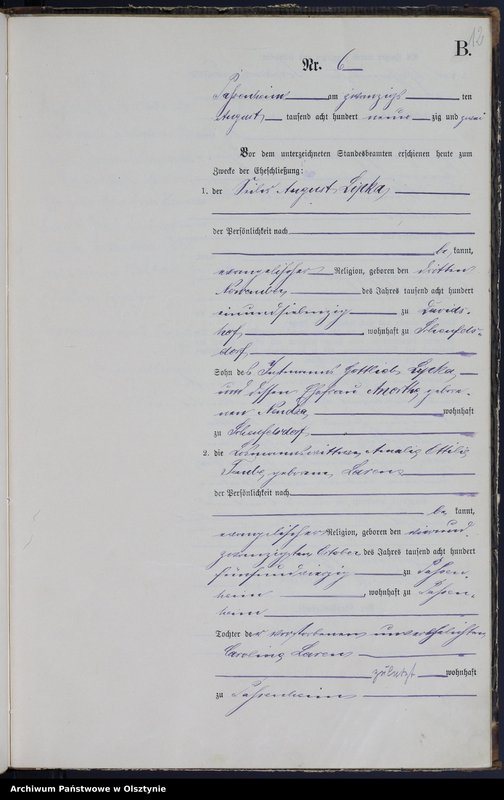 12
B.
Nr. 6
Passenheim am zwanzigsten
August tausend acht hundert neunzig und zwei
Vor dem unterzeichneten Standesbeamten erschienen heute zum
Zwecke der Eheschließung:
1. der August Lipka
der Persönlichkeit nach
be kannt,
evangelischer Religion, geboren den dritten
November des Jahres tausend acht hundert
einundsiebenzig zu Davids-
hof, wohnhaft zu Scheufels-
dorf
Sohn des Instmanns Gottlieb Lipka
und dessen Ehefrau gebore-
nen wohnhaft
zu Scheufelsdorf
2. die Amalie Ottilie
geborene
der Persönlichkeit nach
be kannt,
evangelischer Religion, geboren den vierund-
zwanzigsten October des Jahres tausend acht hundert
zu Passen-
heim, wohnhaft zu Passen-
heim
Tochter der verstorbenen unverehelichten
Caroline
zuletzt wohnhaft
zu Passenheim
Archiwum Państwowe w Olsztynie